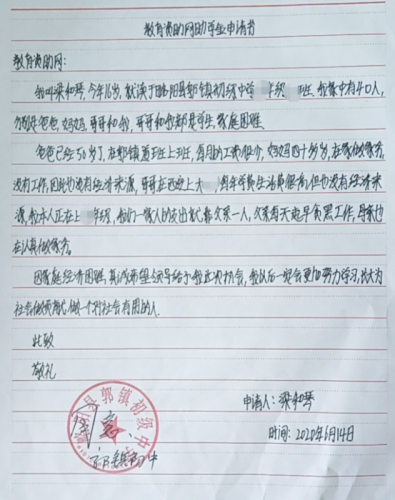 教育资助网助学金申请书
教育资助网:
我叫梁和琴,今年16岁,就读于略阳县郭镇初级中学 年级 班。我家中有4口人,
分别是爸爸,妈妈,哥哥和我,哥哥和我都是学生,家庭困难。
爸爸已经50岁了,在郭镇 上班,每月的工资很少,妈妈四十 岁,在家做家务,
没有工作,因此也没有经济来源,哥哥在西安上大 ,每年学费生活费很高,但也没有经济来
源,我本人正在上 年级,我们一家人的支出就靠父亲一人,父亲每天起早贪黑工作,母亲也
在认真做家务。
因家庭经济困难,真诚希望领导给予我此次机会,我以后一定会更加努力学习,长大为
社会做贡献,做一个对社会有用的人.
此致
敬礼
县郭镇初级中
申请人:梁和琴
时间:2020年6月14日